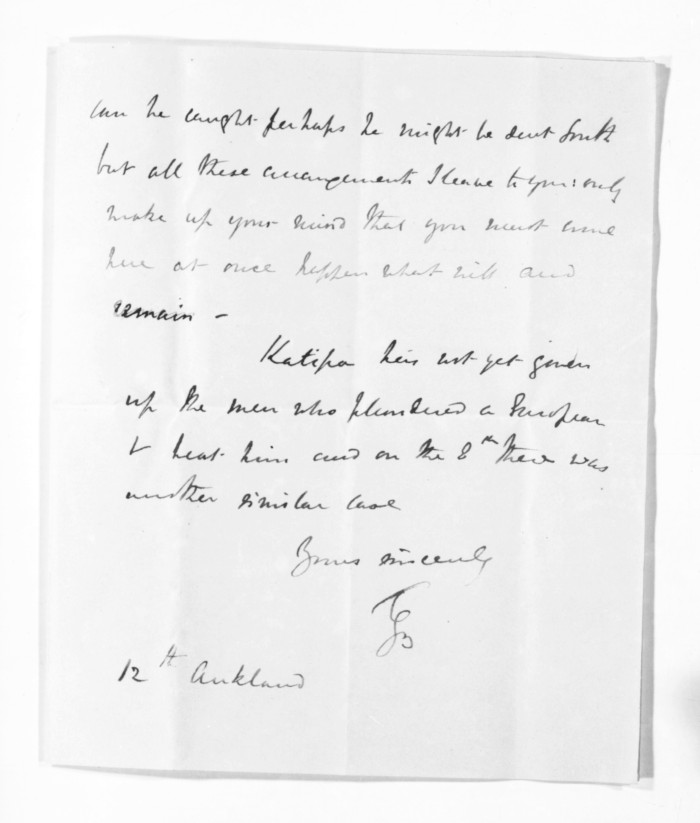 can be caught perhaps he might be sent South
but all these arrangements I leave to you: only
make up your mind that you must come
here at once happen what will and
remain -
Katipa has not yet given
up the men who plundered a European
& beat him and on the 8th there was
another similar case
Yours sincerely
12th Aukland